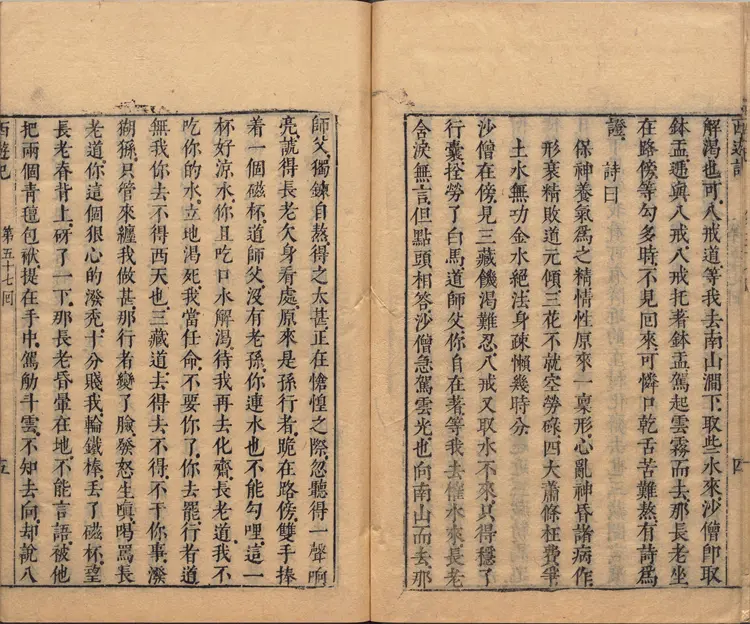 西遊記
四
解渴也可八戒道等我去南山澗下取些水來沙僧即取
鉢盂遞與八戒八戒托著鉢盂駕起雲霧而去那長老坐
在路傍等勾多時不見回來可憐口乾舌苦難熬有詩爲
證 詩曰
保神養氣爲之精情性原來一稟形心亂神昏諸病作
形衰精敗道元傾三花不就空勞碌四大蕭條枉費爭
土水無功金水絕法身疎懶幾時分
沙僧在傍見三藏饑渴難忍八戒又取水不來只得穩了
行囊拴勞了白馬道師父你自在著等我去催水來長老
含淚無言但點頭相答沙僧急駕雲光也向南山而去那
師父獨鍊自熬得之太甚正在愴惶之際忽聽得一聲响
亮諕得長老欠身看處原來是孫行者跪在路傍雙手捧
着一個磁杯道師父沒有老孫你連水也不能勾哩這一
杯好涼水你且吃口水解渴待我再去化齋長老道我不
吃你的水立地渴死我當任命不要你了你去罷行者道
無我你去不得西天也三藏道去得去不得不干你事潑
猢猻只管來纏我做甚那行者變了臉發怒生嗔喝罵長
老道你這個狠心的潑禿十分賤我輪鐵棒丟了磁杯望
長老脊背上砑了一下那長老昏暈在地不能言語被他
把兩個青氊包袱提在手中駕觔斗雲不知去向却說八
西遊記
第五十七囘
五